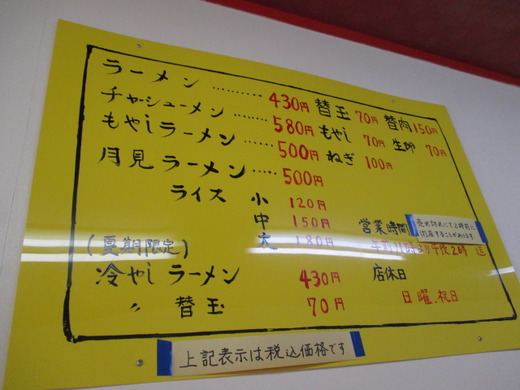 ラーメン ……… 430円 替玉 70円 替肉 150円
チャーシューメン …… 580円 もやし 70円 生卵 70円
もやしラーメン …… 500円 ねぎ 100円
月見ラーメン ……500円
ライス 小 120円
中 150円
大 180円
営業時間
売切れにて2時前に
閉店することがあります
午前11時より午後2時迄
(夏期限定)
冷やしラーメン 430円
〃 替玉 70円
店休日
日曜、祝日
上記表示は税込価格です